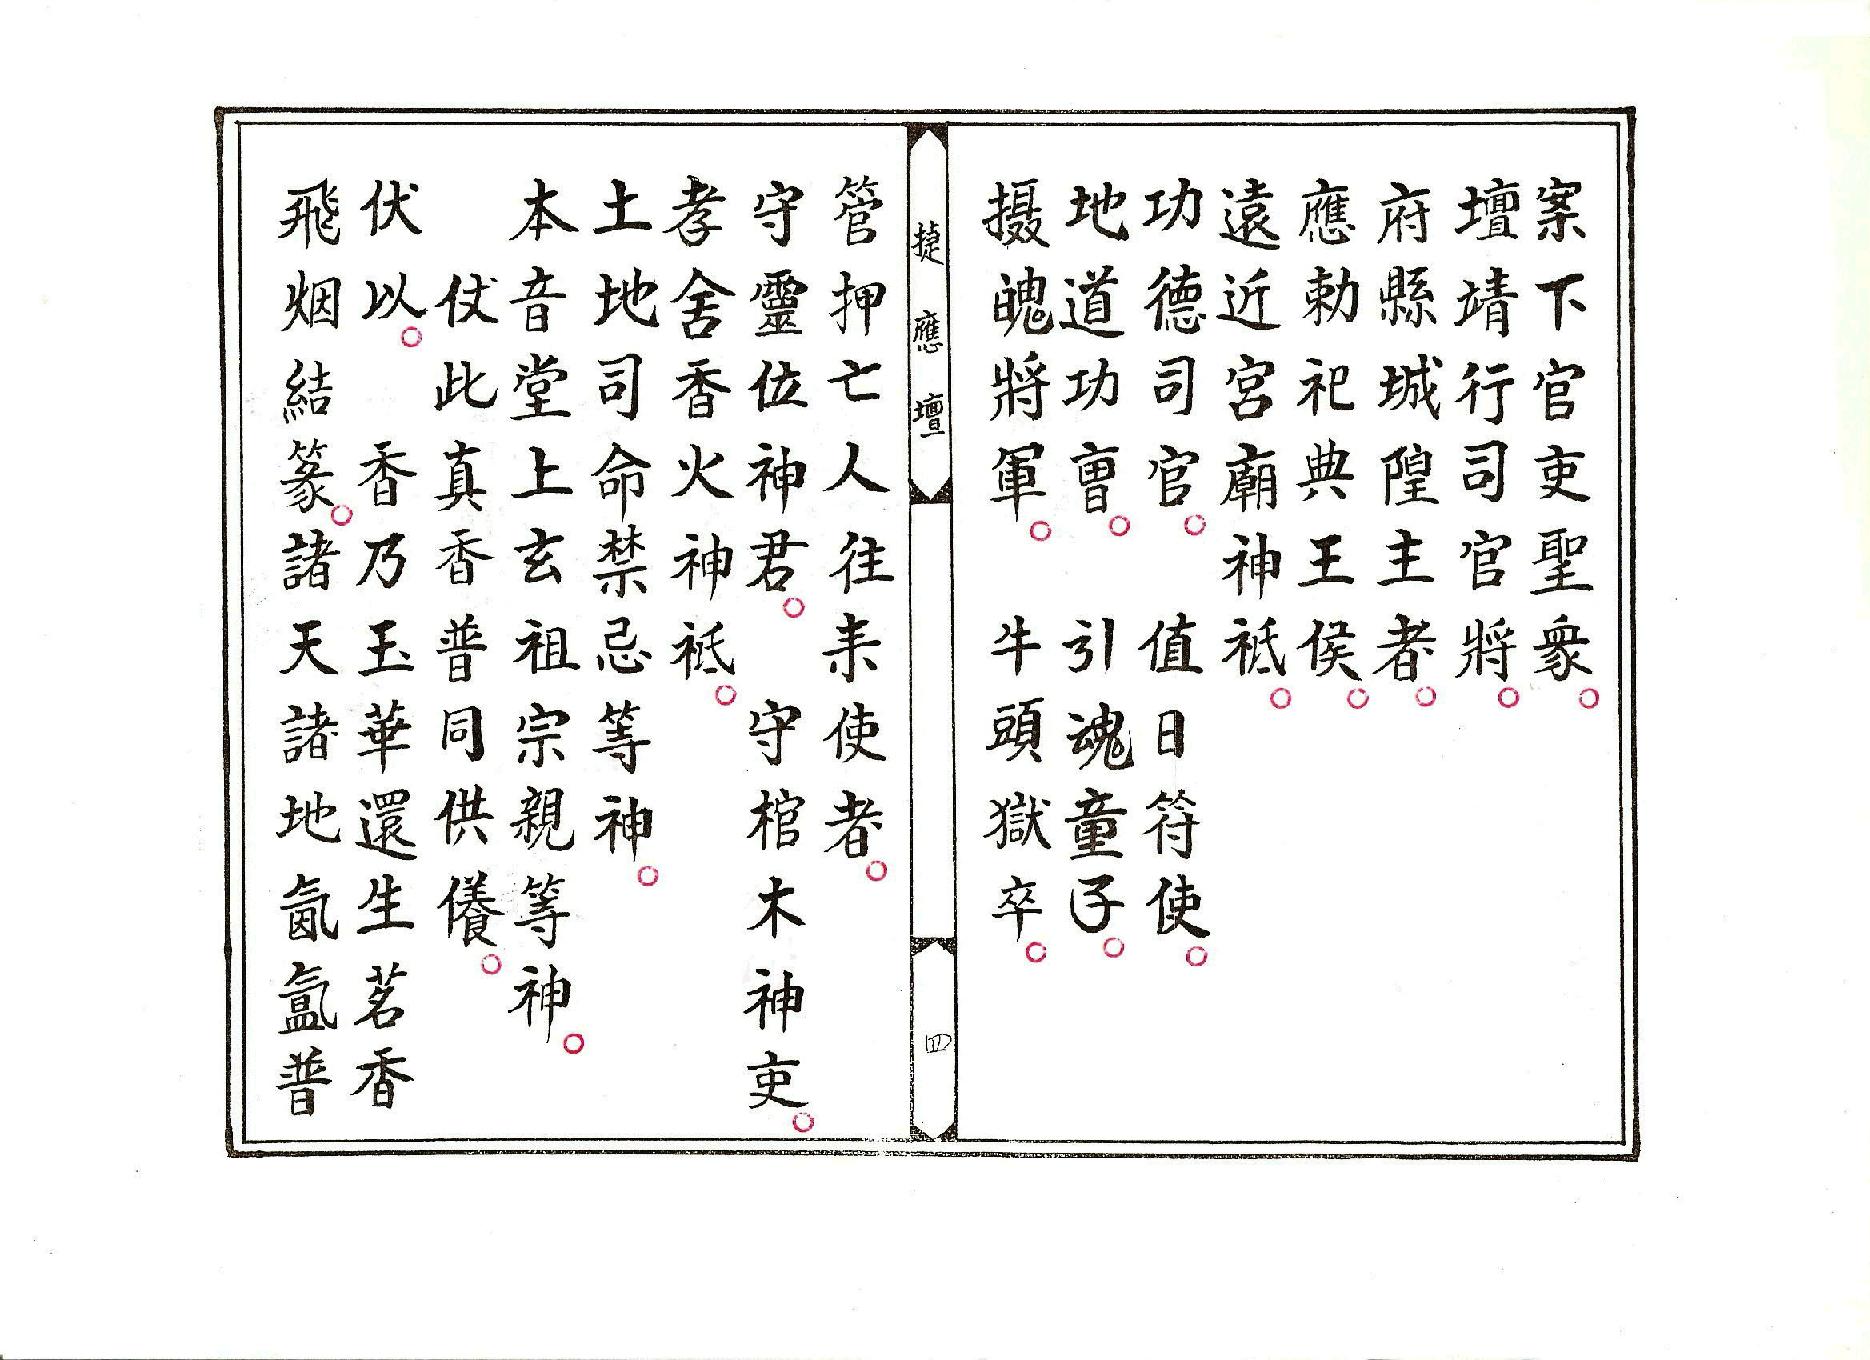 案下官吏聖衆。
壇靖行司官將。
府縣城隍主者。
應勅祀典王侯。
遠近宮廟神祗。
功德司官。 值日符使。
地道功曹。 引魂童子。
摄魄將軍。 牛頭獄卒。
捷應壇
四
管押亡人往來使者。
守靈位神君。 守棺木神吏。
孝舍香火神祗。
土地司命禁忌等神。
本音堂上玄祖宗親等神。
仗此真香普同供養。
伏以。 香乃玉華還生茗香
飛烟結篆。諸天諸地氤氳普